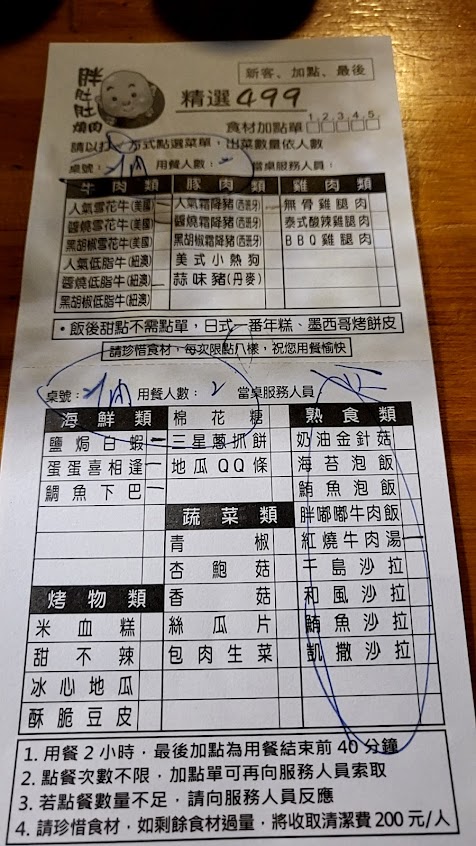 胖肚肚燒肉
新客、加點、最後
精選499
食材加點單 1 2 3 4 5
請以打
方式點選菜單，出菜數量依人數
桌號： 用餐人數：2 當桌服務人員：
牛肉類 豚肉類 雞肉類
人氣雪花牛(美國) 人氣霜降豬(西班牙) 無骨雞腿肉
醬燒雪花牛(美國) 醬燒霜降豬(西班牙) 泰式酸辣雞腿肉
黑胡椒雪花牛(美國) 黑胡椒霜降豬(西班牙) BBQ雞腿肉
人氣低脂牛(紐澳) 美式小熱狗
醬燒低脂牛(紐澳) 蒜味豬(丹麥)
黑胡椒低脂牛(紐澳)
•飯後甜點不需點單，日式一番年糕、墨西哥烤餅皮
請珍惜食材，每次限點八樣，祝您用餐愉快
桌號： 用餐人數：2 當桌服務人員
海鮮類 棉花糖 熟食類
鹽焗白蝦 三星蔥抓餅 奶油金針菇
蛋蛋喜相逢 地瓜QQ條 海苔泡飯
鯛魚下巴 鮪魚泡飯
蔬菜類 胖嘟嘟牛肉飯
青椒 紅燒牛肉湯
杏鮑菇 千島沙拉
烤物類 香菇 和風沙拉
米血糕 絲瓜片 鮪魚沙拉
甜不辣 包肉生菜 凱撒沙拉
冰心地瓜
酥脆豆皮
1. 用餐2小時，最後加點為用餐結束前40分鐘
2. 點餐次數不限，加點單可再向服務人員索取
3. 若點餐數量不足，請向服務人員反應
4. 請珍惜食材，如剩餘食材過量，將收取清潔費200元/人